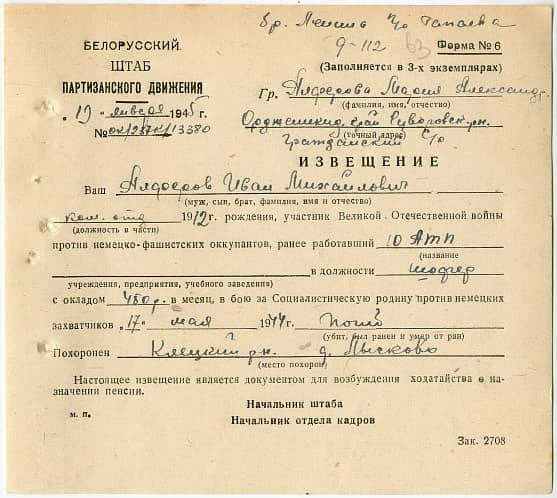 бр. Ленина п/о Гапаева
9-112 63
БЕЛОРУССКИЙ
ШТАБ
ПАРТИЗАНСКОГО ДВИЖЕНИЯ
„19" января 1945г.
Форма № 6
(Заполняется в 3-х экземплярах)
Гр. Алферова Мария Александр.
(фамилия, имя, отчество)
Орджоникид. край Суворовск. рн.
(точный адрес)
Гражданский с/о
ИЗВЕЩЕНИЕ
Ваш Алферов Иван Михайлович
(муж, сын, брат, фамилия, имя и отчество)
ком. отд 1912г. рождения, участник Великой Отечественной войны
(должность в части)
против немецко-фашистских оккупантов, ранее работавший 10 АТП
(название
в должности шофер
учреждения, предприятия, учебного заведения)
с окладом 450р. в месяц, в бою за Социалистическую родину против немецких
захватчиков „17" мая 1944г. погиб
(убит, был ранен и умер от ран)
Похоронен Клецкий рн. д. Лысково
(место похорон)
Настоящее извещение является документом для возбуждения ходатайства о на-
значении пенсии.
Начальник штаба
м. п.
Начальник отдела кадров
Зак. 2708